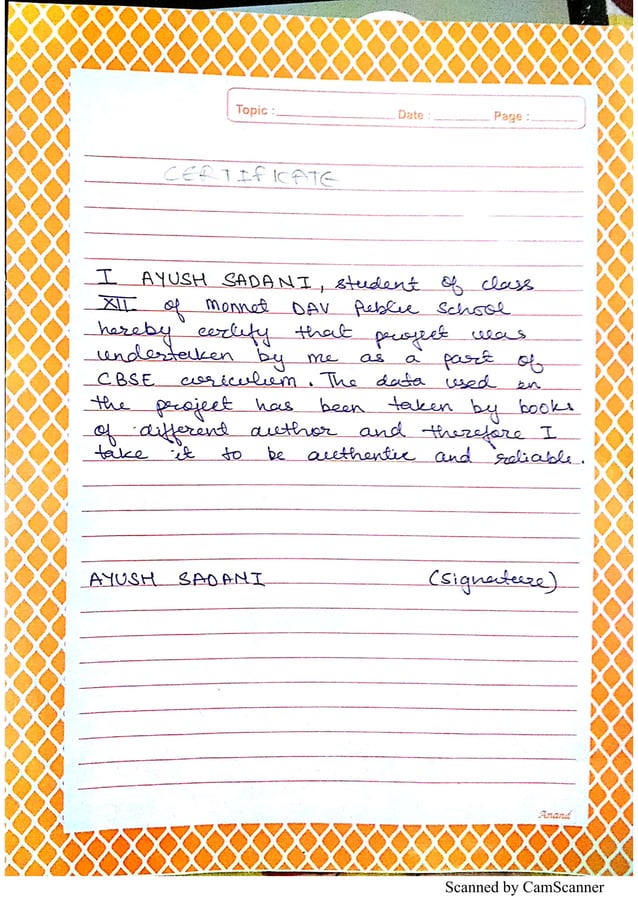 Topic : Date : Page :
CERTIFICATE
I AYUSH SADANI, student of class
XII of Monnet DAV Public School
hereby certify that project was
undertaken by me as a part of
CBSE curiculum. The data used in
the project has been taken by books
of different author and therefore I
take it to be authentic and reliable.
AYUSH SADANI (Signature)
Anand
Scanned by CamScanner